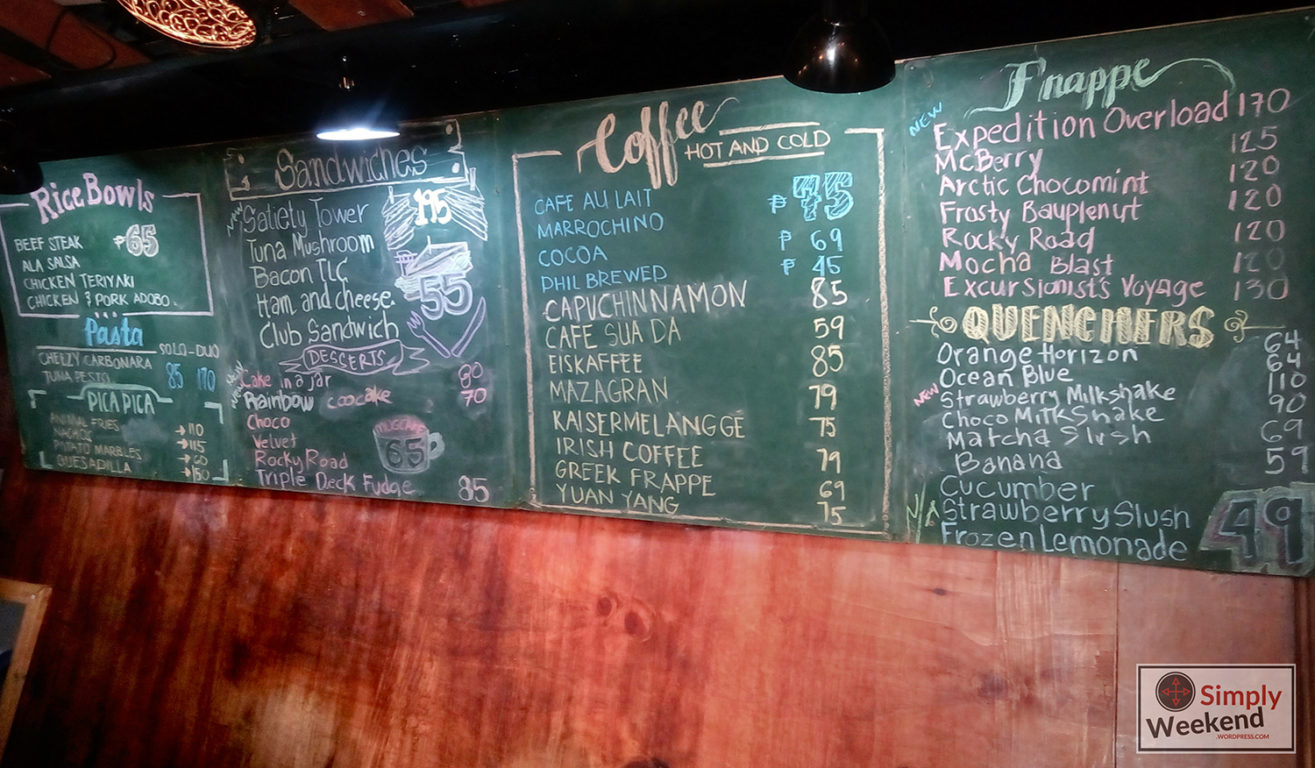 Rice Bowls
BEEF STEAK ₱65
ALA SALSA
CHICKEN TERIYAKI
CHICKEN & PORK ADOBO
Pasta
SOLO-DUO
CHEEZY CARBONARA
TUNA PESTO 85 170
PICA PICA
ANIMAL FRIES 110
NACHOS 115
POTATO MARBLES
QUESADILLA
Sandwiches
NEW Satiety Tower 195
Tuna Mushroom
Bacon TLC
Ham and cheese ₱55
Club Sandwich
DESCERTS
NEW Cake in a jar 80
NEW Rainbow coocake 70
Choco
Velvet MUGCAKE 65
Rocky Road
Triple Deck Fudge 85
Coffee
HOT AND COLD
CAFE AU LAIT ₱75
MARROCHINO
COCOA ₱ 69
PHIL BREWED ₱ 45
CAPUCHINNAMON 85
CAFE SUA DA 59
EISKAFFEE 85
MAZAGRAN 79
KAISERMELANGGE 75
IRISH COFFEE 79
GREEK FRAPPE 69
YUAN YANG 75
Frappe
NEW Expedition Overload 170
McBerry 125
Arctic Chocomint 120
Frosty Bauplenut 120
Rocky Road 120
Mocha Blast 120
Excursionist's Voyage 130
QUENCHERS
Orange Horizon 64
Ocean Blue 64
NEW Strawberry Milkshake 110
Choco Milkshake 90
Matcha Slush 69
Banana 59
Cucumber
N/A Strawberry Slush 49
Frozen Lemonade
Simply
Weekend
.WORDPRESS.COM